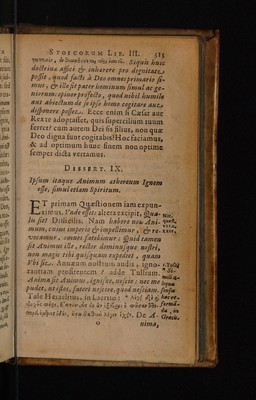 STOICORUM LIB. III. 515
Siquis huic
doctrinæ affici & inhærere pro dignitate
possit, quod facti à Deo omnes primario si-
mus, & ille sit pater hominum simul ac ge-
niorum: opinor profecto, quod nihil humile
aut abiectum de se ipso homo cogitare aut
disponere posset. Ecce enim si Cæsar aut
Rex te adoptasset, quis supercilium tuum
ferret? cum autem Dei sis filius, non quæ
Deo digna sunt cogitabis? Hoc faciamus,
& ad optimum huic finem non optime
semper dicta vertamus.
DISSERT. IX.
Ipsum itaque Animum æthereum Ignem
esse, simul etiam Spiritum.
ET primam Quæstionem iam expun-
ximus, Unde esset: altera excipit, Qua-
lis sit? Difficilis. Nam habere nos Ani-
mum, cuius imperio & impellimur, & re-
vocamur, omnes fatebuntur: Quid tamen
sit Animus ille, rector dominusque nostri,
non magis tibi quisquam expediet, quam
Ubi sit. Annæum nostrum audis, igno-
rantiam profitentem? adde Tullium.
Anima sit Animus, ignisne, nescio: nec me
pudet, ut istos, fateri nescire, quod nesciam.
Tale Heraclitus, in Laertio:
De A-
nima,